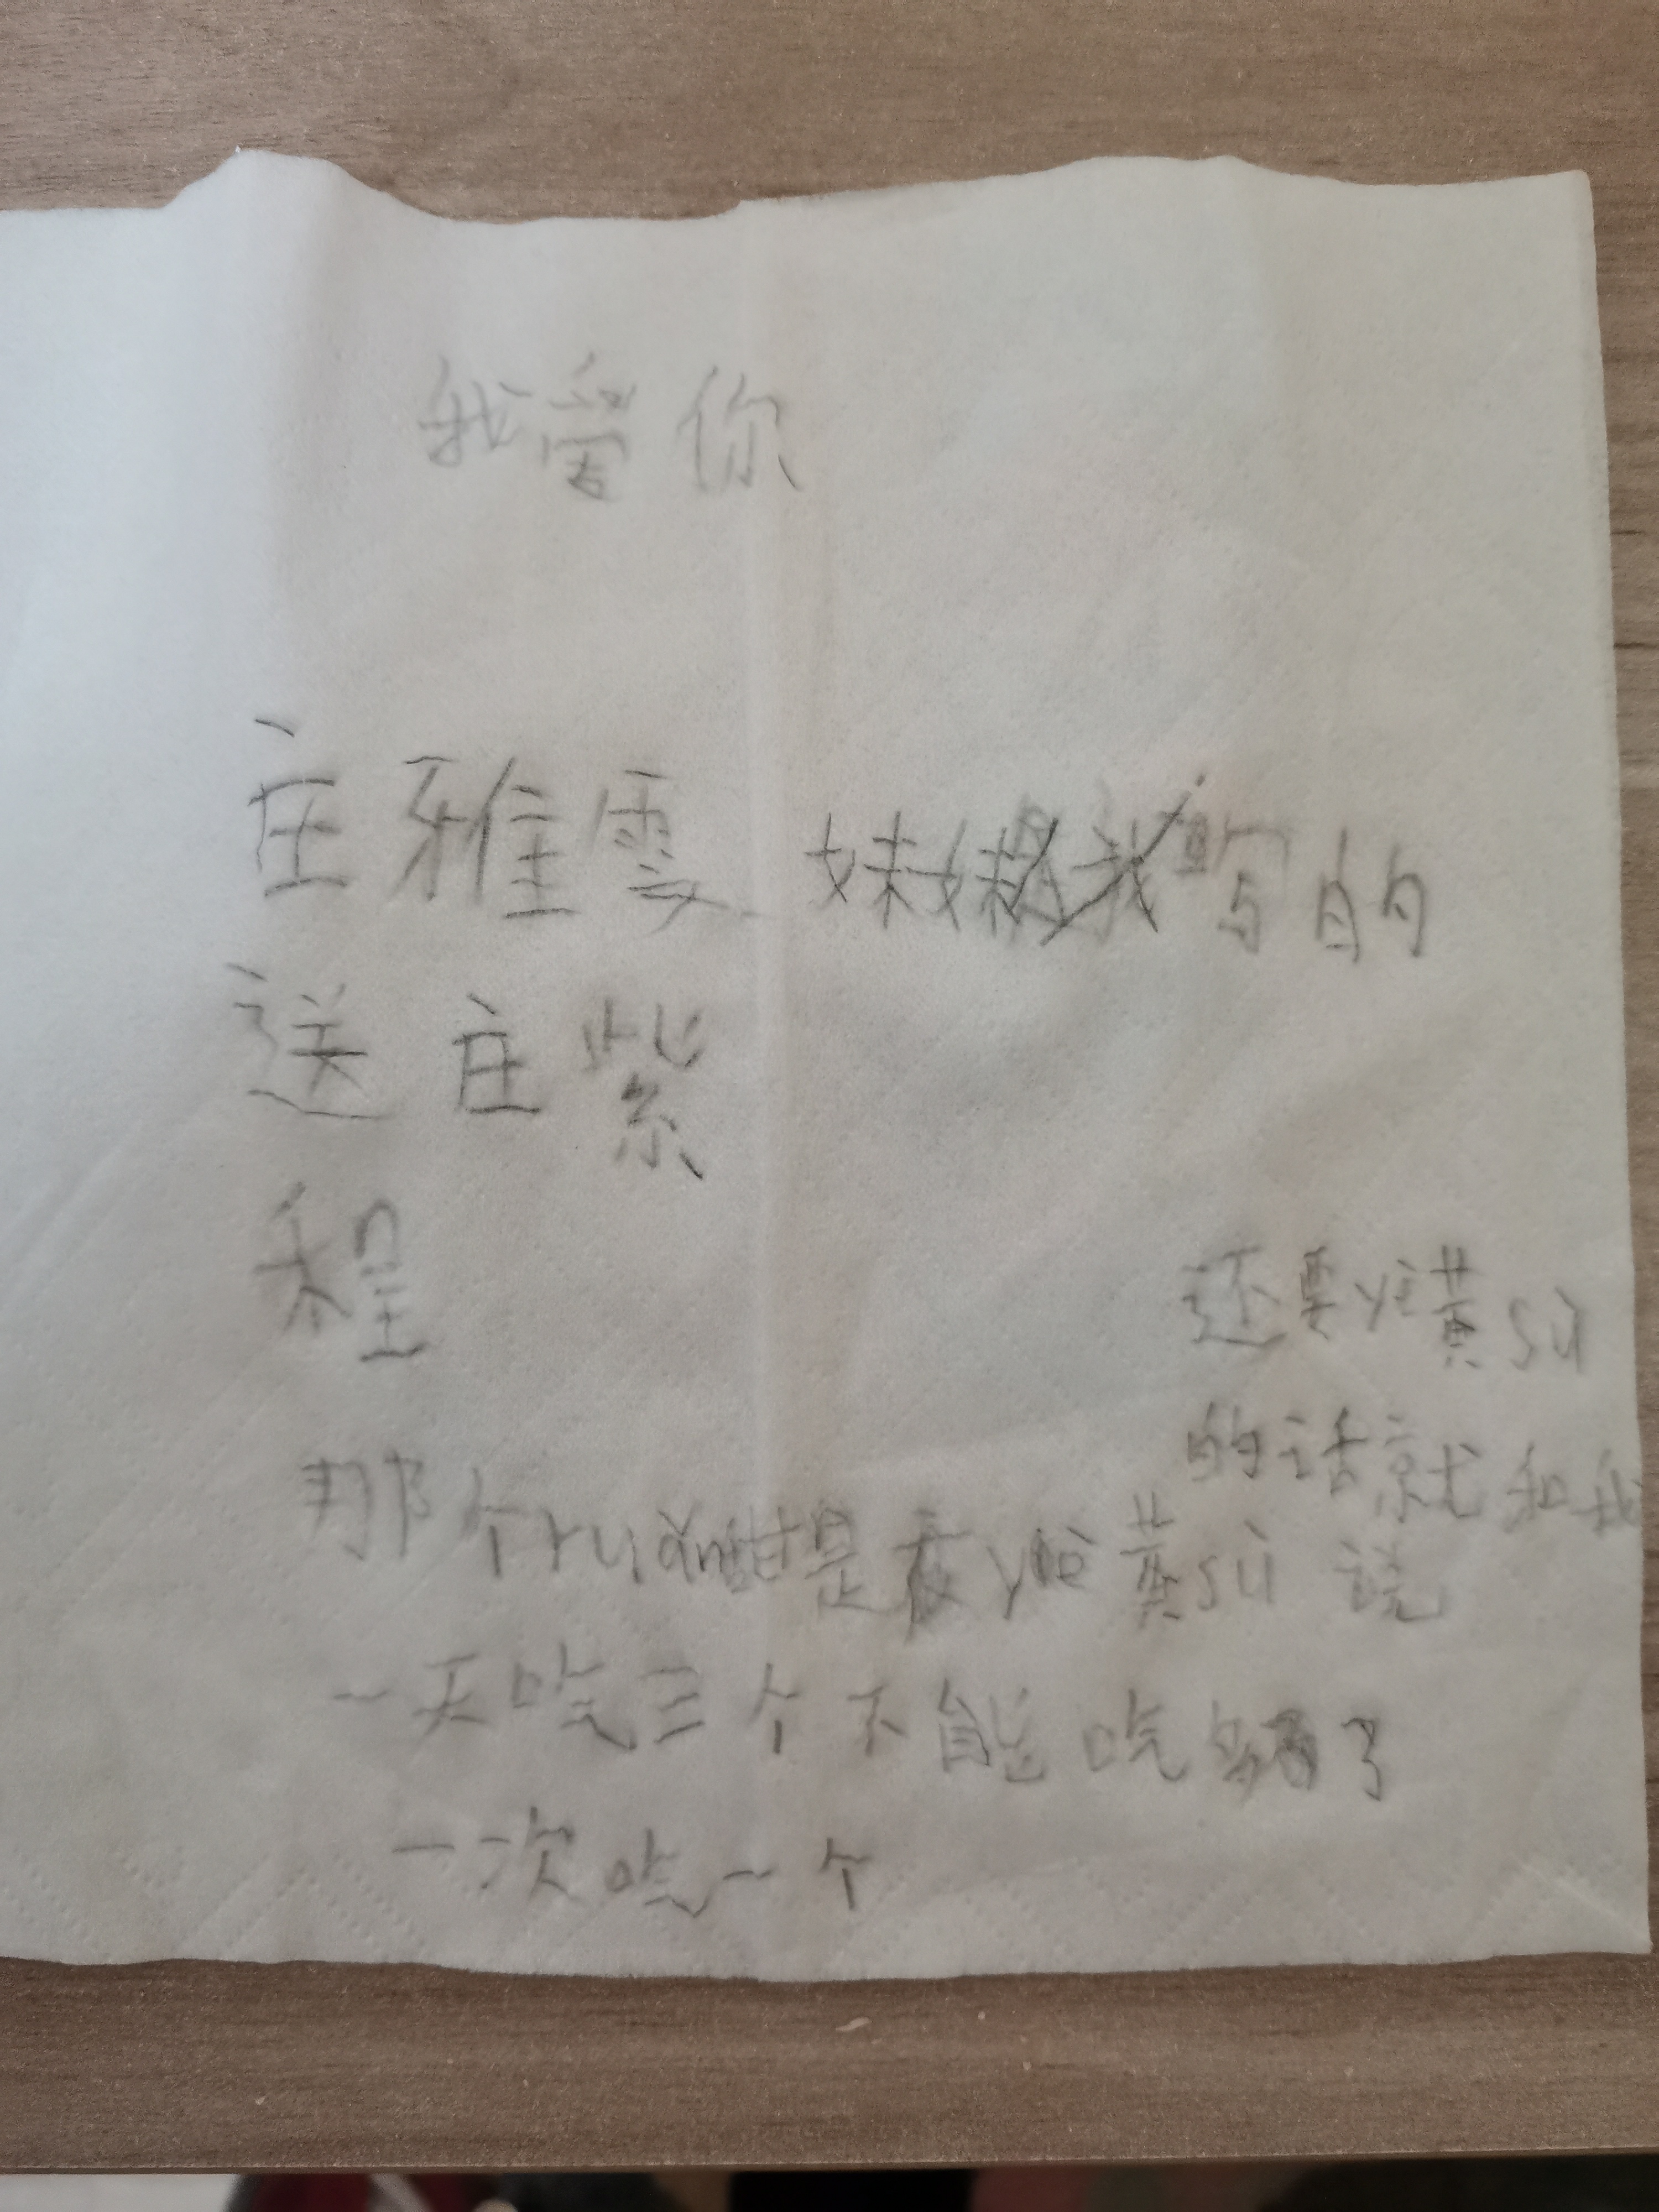 我爱你
庄雅雯 妹妹 写的
送庄紫
程
还要yè黄sù
的话就和我
说
那个ruǎn 是夜yè黄sù
一天吃三个不能吃多了
一次吃一个